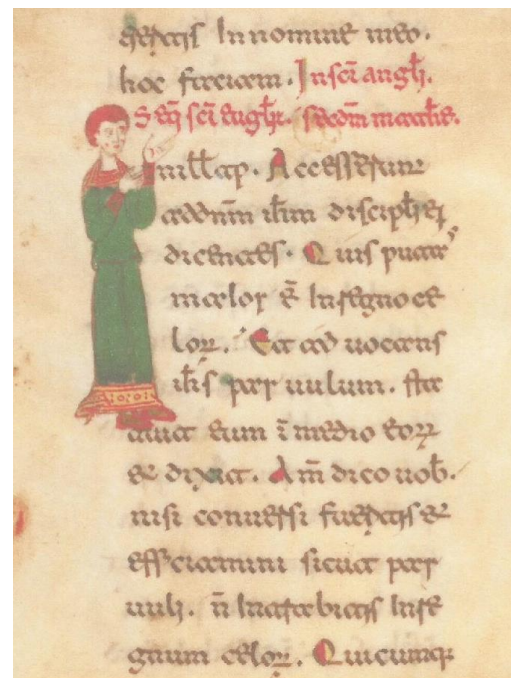 tieritis In nomine meo.
hoc faciam. In sc̄i angl̄i.
Seq̄ sc̄i eugl̄ii. secdm̄ mathe.
In ill̄ tp̄. Accesserunt
ad dnm̄ ihm̄ discipli ei
dicentes. Quis putat
maior ē In regno ce
loꝝ. Et ad uocans
ih̄s par uulum. sta
tuit eum ī medio eoꝝ
et dixit. Am̄ dico uob̄.
nisi conuersi fueritis et
efficiamini sicut par
uuli. n̄ Intrabitis In re
gnum celoꝝ. Quicumq;